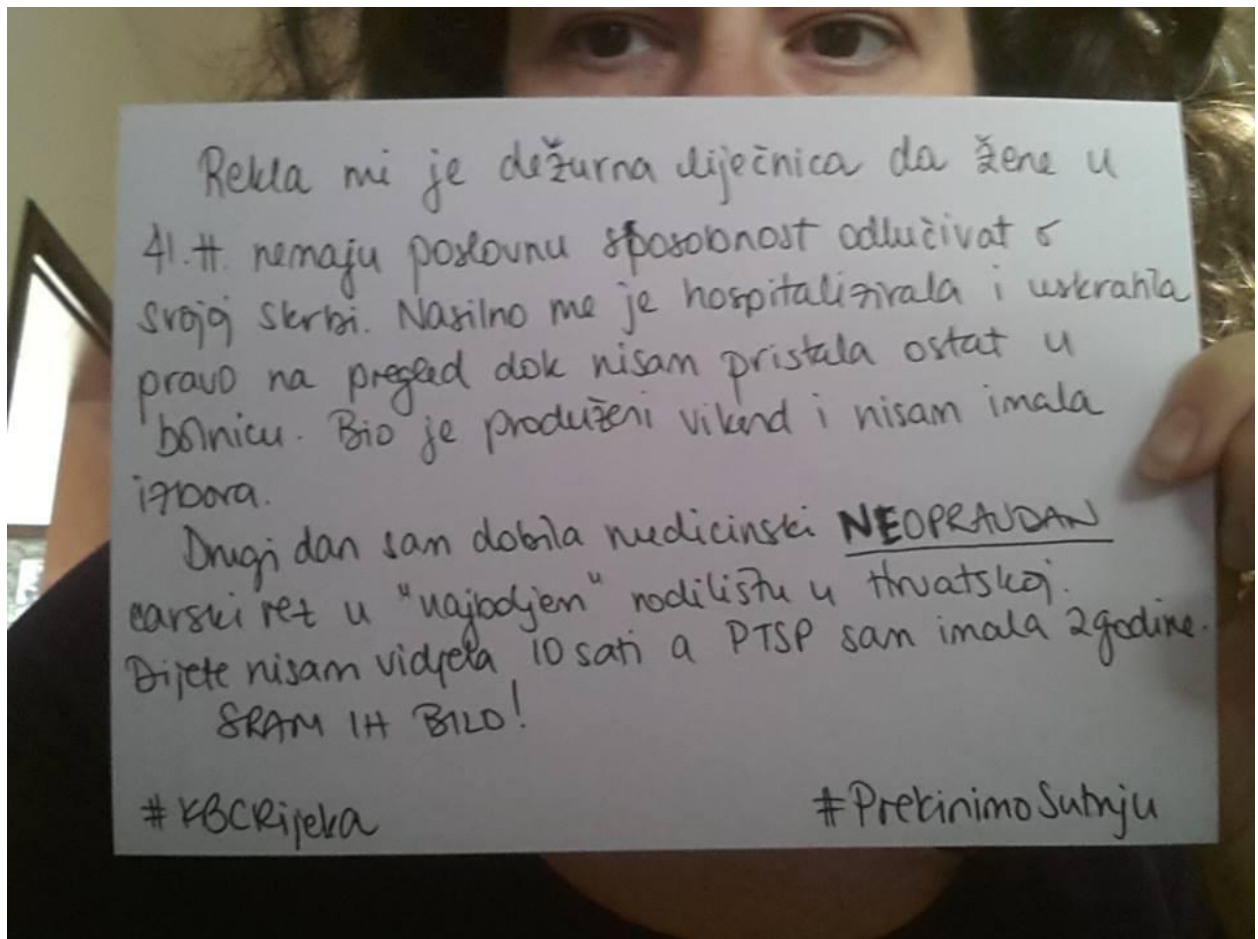 Rekla mi je dežurna liječnica da žene u
41.tt. nemaju poslovnu sposobnost odlučivat o
svojoj skrbi. Nasilno me je hospitalizirala i uskratila
pravo na pregled dok nisam pristala ostat u
bolnicu. Bio je produženi vikend i nisam imala
izbora.
Drugi dan sam dobila medicinski NEOPRAVDAN
carski rez u "najboljem" rodilištu u Hrvatskoj.
Dijete nisam vidjela 10 sati a PTSP sam imala 2 godine.
SRAM IH BILO!
#KBCRijeka #PrekinimoŠutnju